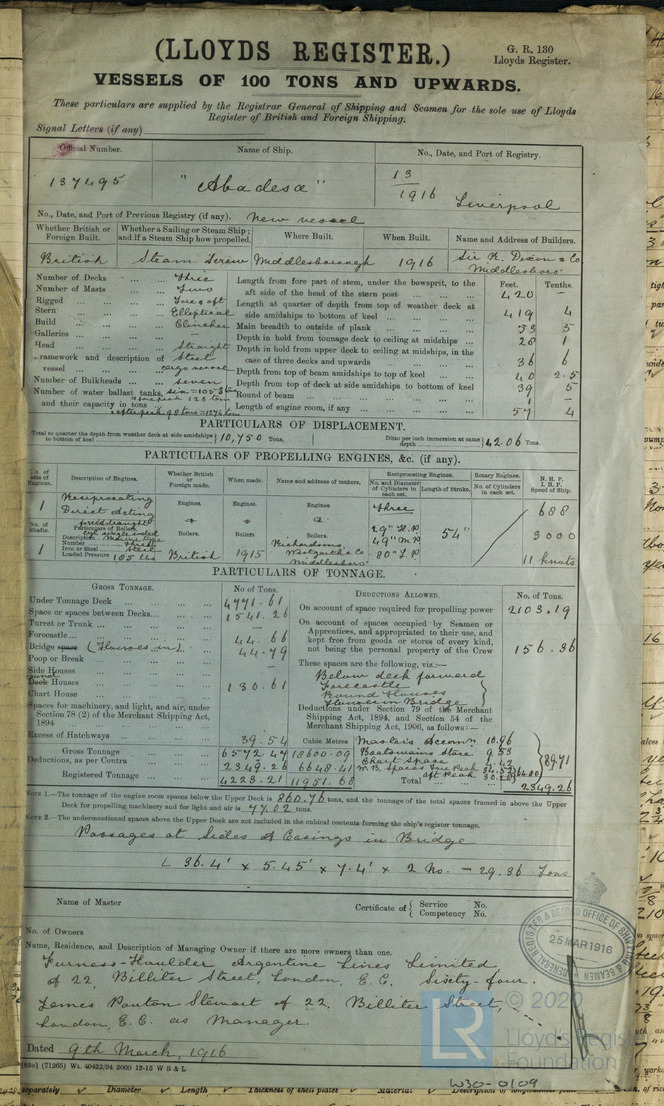 (LLOYDS REGISTER.)
G. R. 130
Lloyds Register.
VESSELS OF 100 TONS AND UPWARDS.
These particulars are supplied by the Registrar General of Shipping and Seamen for the sole use of Lloyds
Register of British and Foreign Shipping.
Signal Letters (if any)
Official Number. Name of Ship. No., Date, and Port of Registry.
137495 "Abadesa" 13/1916 Liverpool
No., Date, and Port of Previous Registry (if any). New vessel
Whether British or Foreign Built. Whether a Sailing or Steam Ship; and if a Steam Ship how propelled. Where Built. When Built. Name and Address of Builders.
British Steam Screw Middlesborough 1916 Sir R. Dixon & Co Middlesboro'
Number of Decks three
Number of Masts Two
Rigged Fore & aft
Stern Elliptical
Build Clincher
Galleries —
Head Straight
Framework and description of vessel Steel cargo vessel
Number of Bulkheads seven
Number of water ballast tanks, and their capacity in tons
Feet. Tenths.
Length from fore part of stem, under the bowsprit, to the aft side of the head of the stern post 420 —
Length at quarter of depth from top of weather deck at side amidships to bottom of keel 419 4
Main breadth to outside of plank 53 5
Depth in hold from tonnage deck to ceiling at midships 28 1
Depth in hold from upper deck to ceiling at midships, in the case of three decks and upwards 36 6
Depth from top of beam amidships to top of keel 40 2.5
Depth from top of deck at side amidships to bottom of keel 39 5
Round of beam 1 —
Length of engine room, if any 57 4
PARTICULARS OF DISPLACEMENT.
Total to quarter the depth from weather deck at side amidships to bottom of keel 10,750 Tons. Ditto per inch immersion at same depth 42.06 Tons.
PARTICULARS OF PROPELLING ENGINES, &c. (if any).
No. of sets of Engines. Description of Engines. Whether British or Foreign made. When made. Name and address of makers. Reciprocating Engines. Rotary Engines. N. H. P. I. H. P. Speed of Ship.
No. and Diameter of Cylinders in each set. Length of Stroke. No. of Cylinders in each set.
1 Reciprocating Direct Acting Engines. Engines. Engines. three 688
No. of Shafts. Particulars of Boilers. Boilers. Boilers Boilers. 29" H.P 49" M.P 80" L.P 54" 3000
Description
Number
Iron or Steel Steel
Loaded Pressure 185 lbs
1 British 1915 Richardsons Westgarth & Co Middlesboro' 11 knots
PARTICULARS OF TONNAGE.
GROSS TONNAGE. No. of Tons.
Under Tonnage Deck 4771.61
Space or spaces between Decks 1541.26
Turret or Trunk —
Forecastle 44.66
Bridge space (Houses in) 44.79
Poop or Break —
Side Houses
Deck Houses 130.61
Chart House
Spaces for machinery, and light, and air, under Section 78 (2) of the Merchant Shipping Act, 1894
Excess of Hatchways 39.54
Cubic Metres
Gross Tonnage 6572.47 18600.09
Deductions, as per Contra 2349.26 6648.41
Registered Tonnage 4223.21 11951.68
DEDUCTIONS ALLOWED. No. of Tons.
On account of space required for propelling power 2103.19
On account of spaces occupied by Seamen or Apprentices, and appropriated to their use, and kept free from goods or stores of every kind, not being the personal property of the Crew 156.36
These spaces are the following, viz.:—
Below deck forward
Forecastle
Round Houses
Houses in Bridge
Deductions under Section 79 of the Merchant Shipping Act, 1894, and Section 54 of the Merchant Shipping Act, 1906, as follows:—
Master's Accomn 10.96
Boatswains Store 9.53
Chart Space
W. B. Spaces Fore Peak
Aft Peak
89.71
Total 2349.26
NOTE 1.—The tonnage of the engine room spaces below the Upper Deck is 860.76 tons, and the tonnage of the total spaces framed in above the Upper
Deck for propelling machinery and for light and air is 77.02 tons.
NOTE 2.—The undermentioned spaces above the Upper Deck are not included in the cubical contents forming the ship's register tonnage.
Passages at sides of Casings in Bridge
L 36.4' × 5.45' × 7.4' × 2 No. = 29.36 Tons
Name of Master
Certificate of { Service No.
Competency No.
No. of Owners
Name, Residence, and Description of Managing Owner if there are more owners than one.
Furness-Houlder Argentine Lines Limited
of 22, Billiter Street, London, E.C. Sixty-four.
James Panton Stewart of 22, Billiter Street,
London, E.C. as Manager.
Dated 9th March, 1916
(71265) Wt. 40422/94 2000 12-15 W B & L
GENERAL REGISTER & RECORD OFFICE OF SHIPPING & SEAMEN
25 MAR 1916
LR
© 202
Lloyd's Regist
Foundation
W30-0109
separately Diameter Length Thickness of shell plates Material